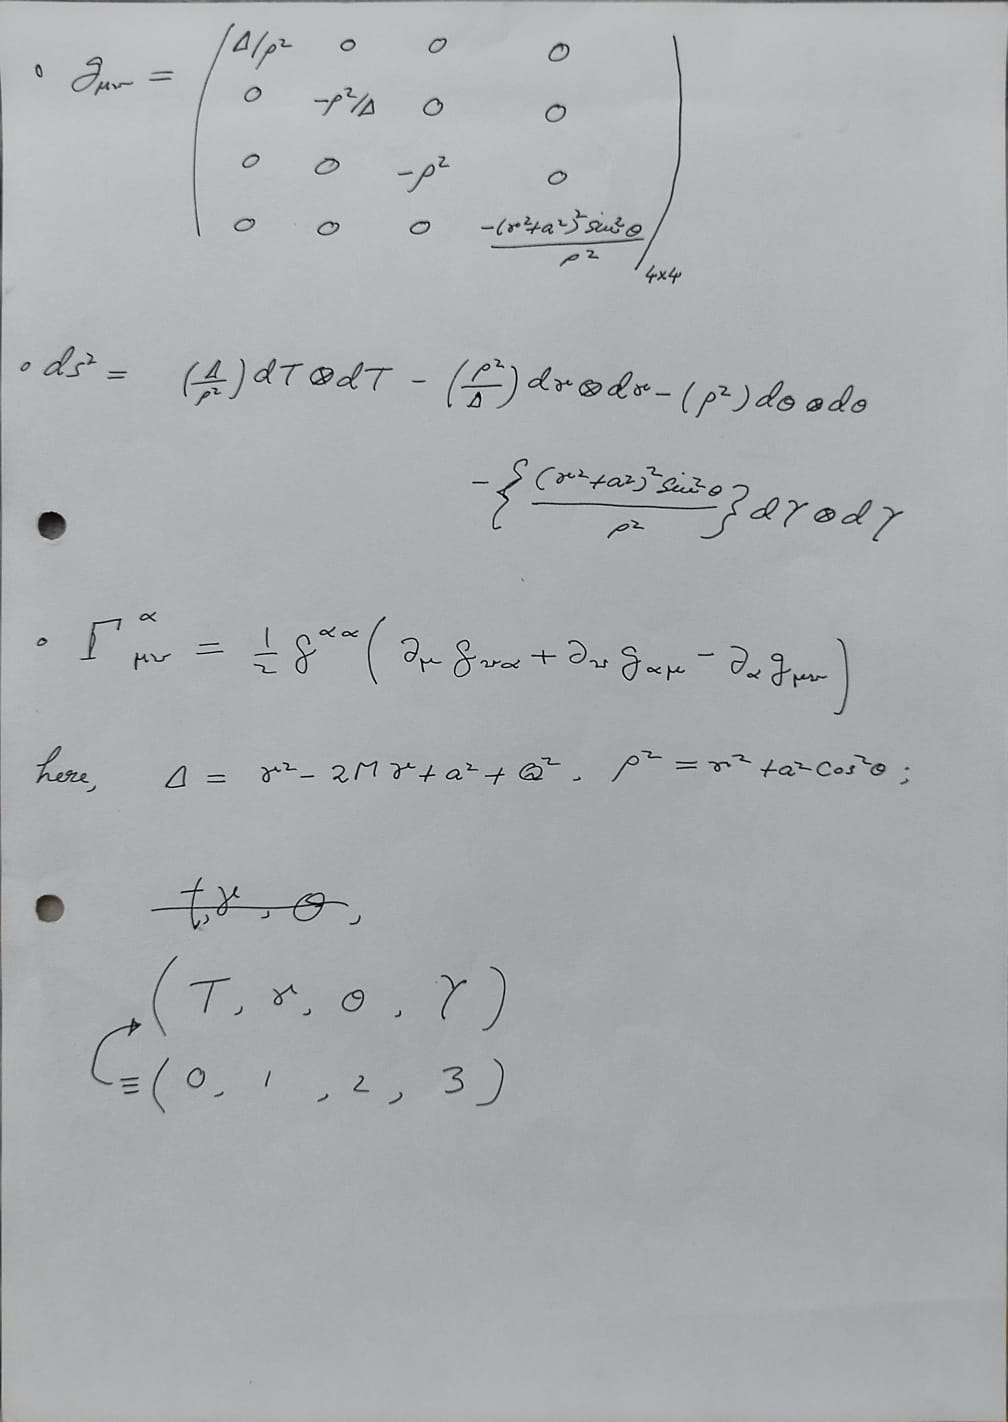 • g_μν = ( Δ/ρ² 0 0 0
0 -ρ²/Δ 0 0
0 0 -ρ² 0
0 0 0 -(r²+a²)² sin²θ / ρ² )₄ₓ₄
• ds² = (Δ/ρ²) dT⊗dT - (ρ²/Δ) dr⊗dr - (ρ²) dθ⊗dθ
- { (r²+a²)² sin²θ / ρ² } dγ⊗dγ
• Γ^α_μν = 1/2 g^αα ( ∂_μ g_να + ∂_ν g_αμ - ∂_α g_μν )
here, Δ = r² - 2Mr + a² + Q², ρ² = r² + a² cos²θ ;
t, r, θ,
(T, r, θ, γ)
≡ (0, 1, 2, 3)